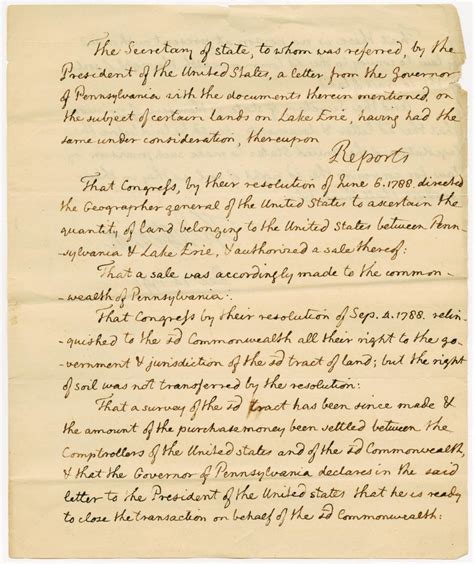 The Secretary of state, to whom was referred, by the
President of the United States, a letter from the Governor
of Pennsylvania with the documents therein mentioned, on
the subject of certain lands on Lake Erie, having had the
same under consideration, thereupon
Reports
That Congress, by their resolution of June 6. 1788. directed
the Geographer general of the United States to ascertain the
quantity of land belonging to the United States between Penn-
-sylvania & Lake Erie, & authorized a sale thereof:
That a sale was accordingly made to the common-
-wealth of Pennsylvania:
That Congress by their resolution of Sep. 4. 1788. relin-
-quished to the sd Commonwealth all their right to the go-
-vernment & jurisdiction of the sd tract of land; but the right
of soil was not transferred by the resolution:
That a survey of the sd tract has been since made &
the amount of the purchase money been settled between the
Comptrollers of the United states and of the sd Commonwealth,
& that the Governor of Pennsylvania declares in the said
letter to the President of the United states that he is ready
to close the transaction on behalf of the sd Commonwealth: